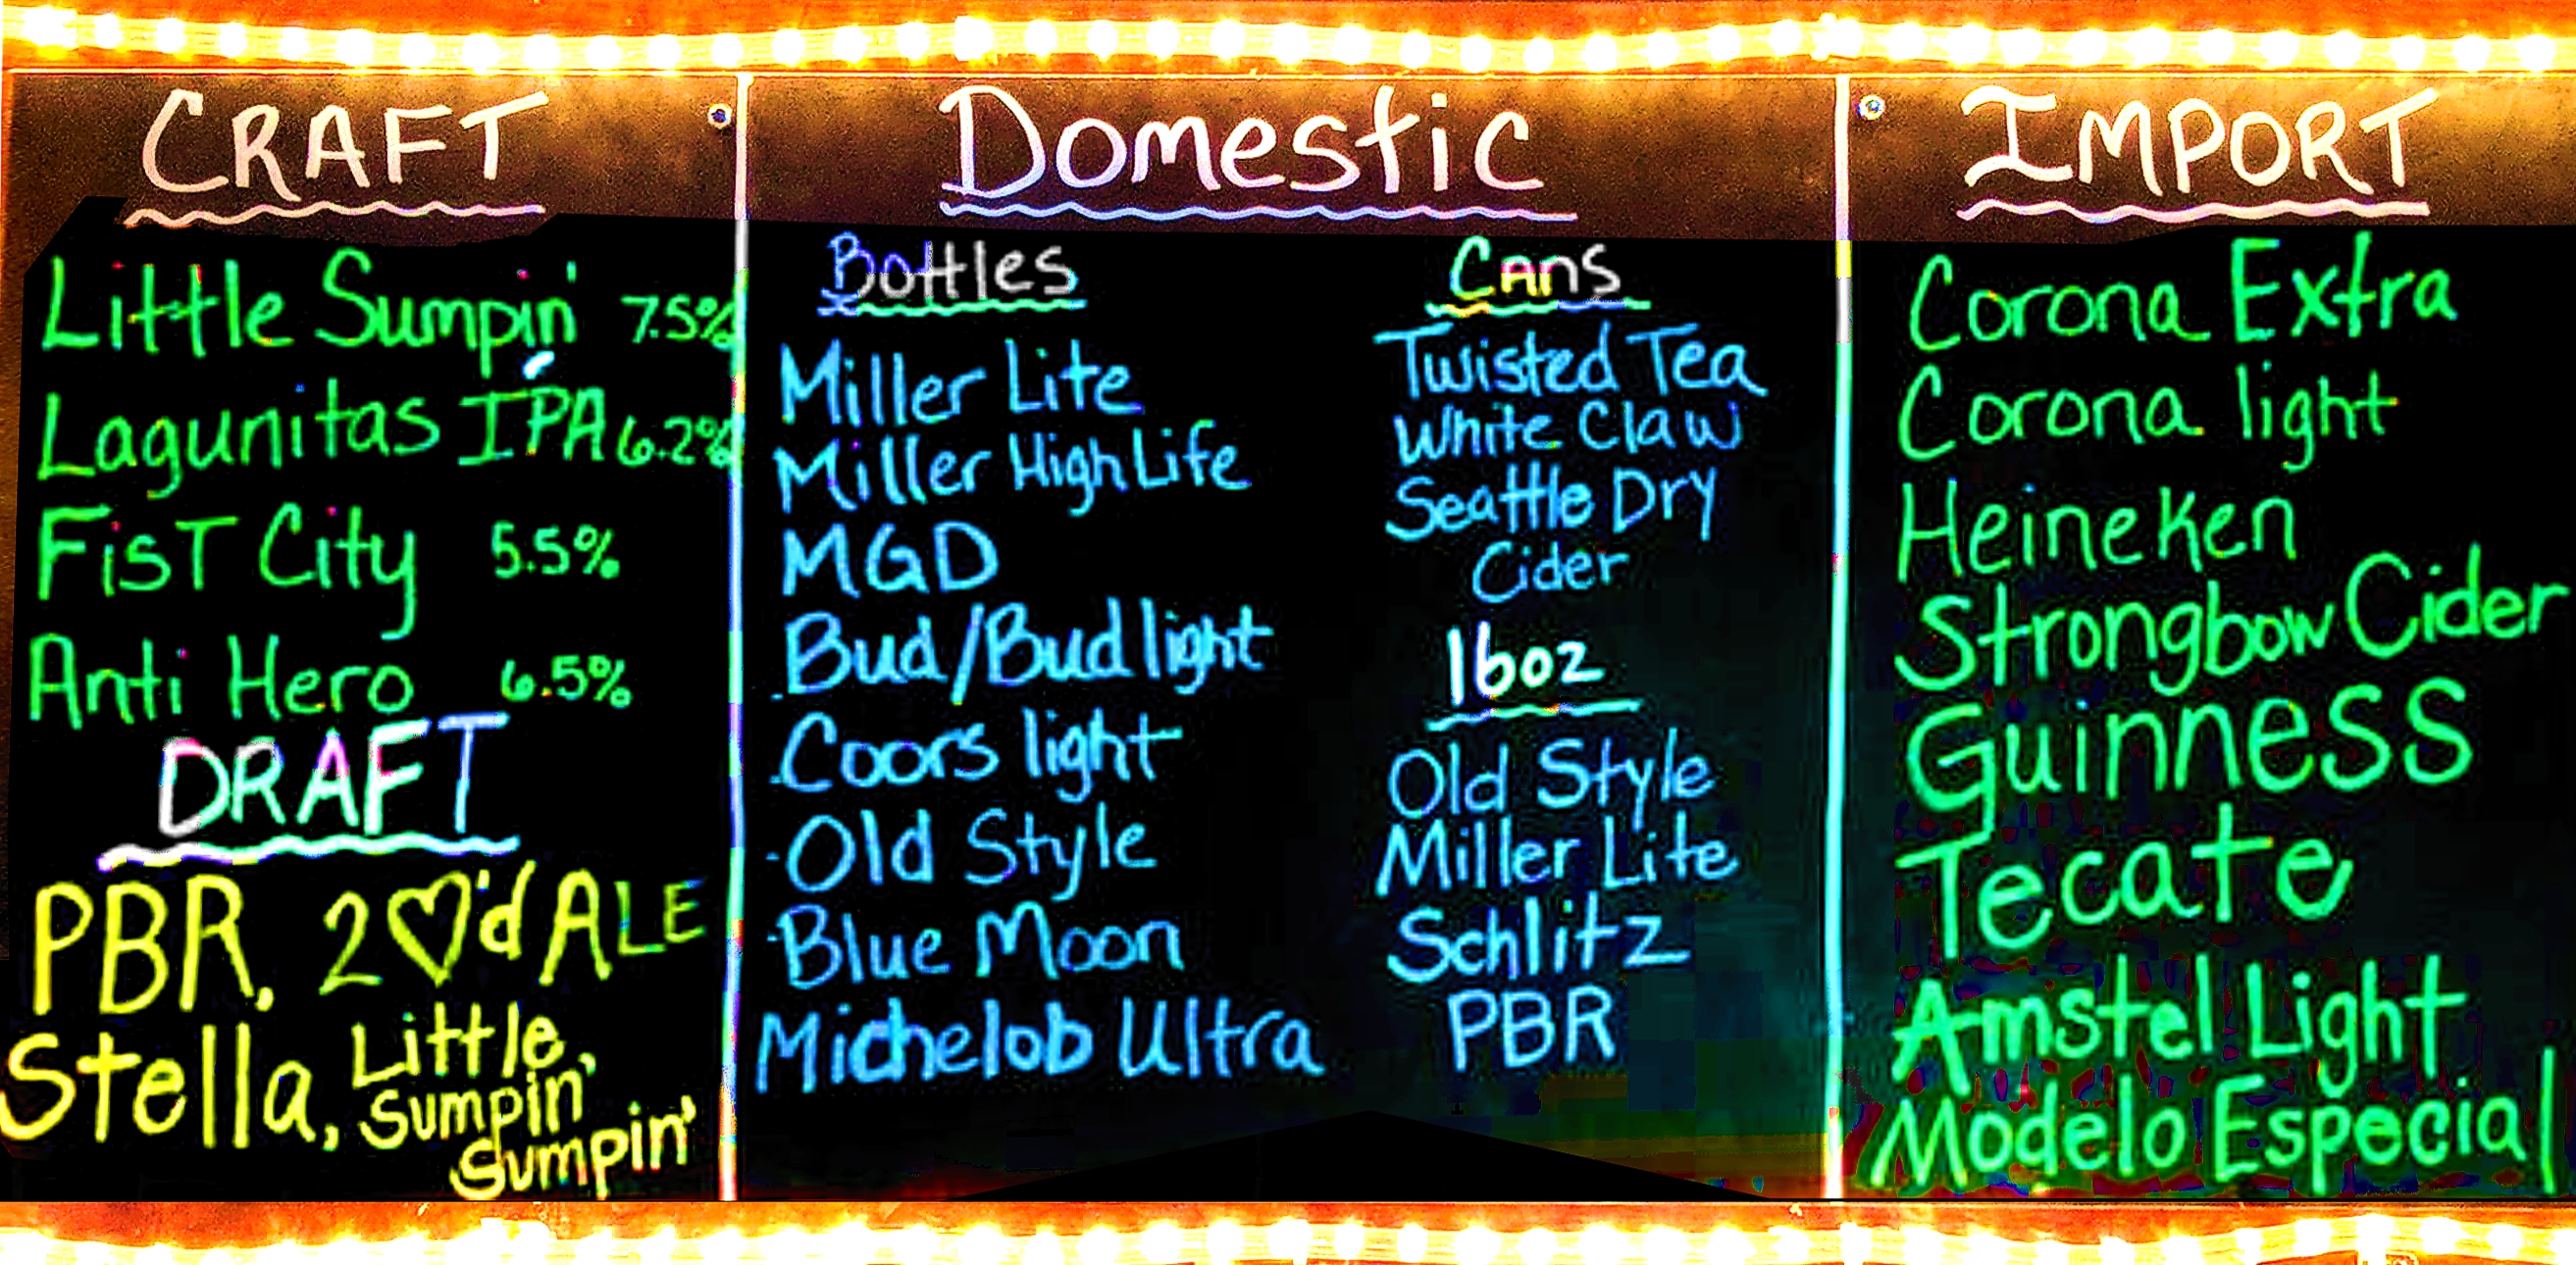 CRAFT
Little Sumpin' 7.5%
Lagunitas IPA 6.2%
FisT City 5.5%
Anti Hero 6.5%
DRAFT
PBR, 2♡'d ALE
Stella, Little,
Sumpin'
Sumpin'
Domestic
Bottles
Miller Lite
Miller High Life
MGD
Bud/Bud light
Coors light
Old Style
Blue Moon
Michelob Ultra
Cans
Twisted Tea
White Claw
Seattle Dry
Cider
16oz
Old Style
Miller Lite
Schlitz
PBR
IMPORT
Corona Extra
Corona light
Heineken
Strongbow Cider
Guinness
Tecate
Amstel Light
Modelo Especial